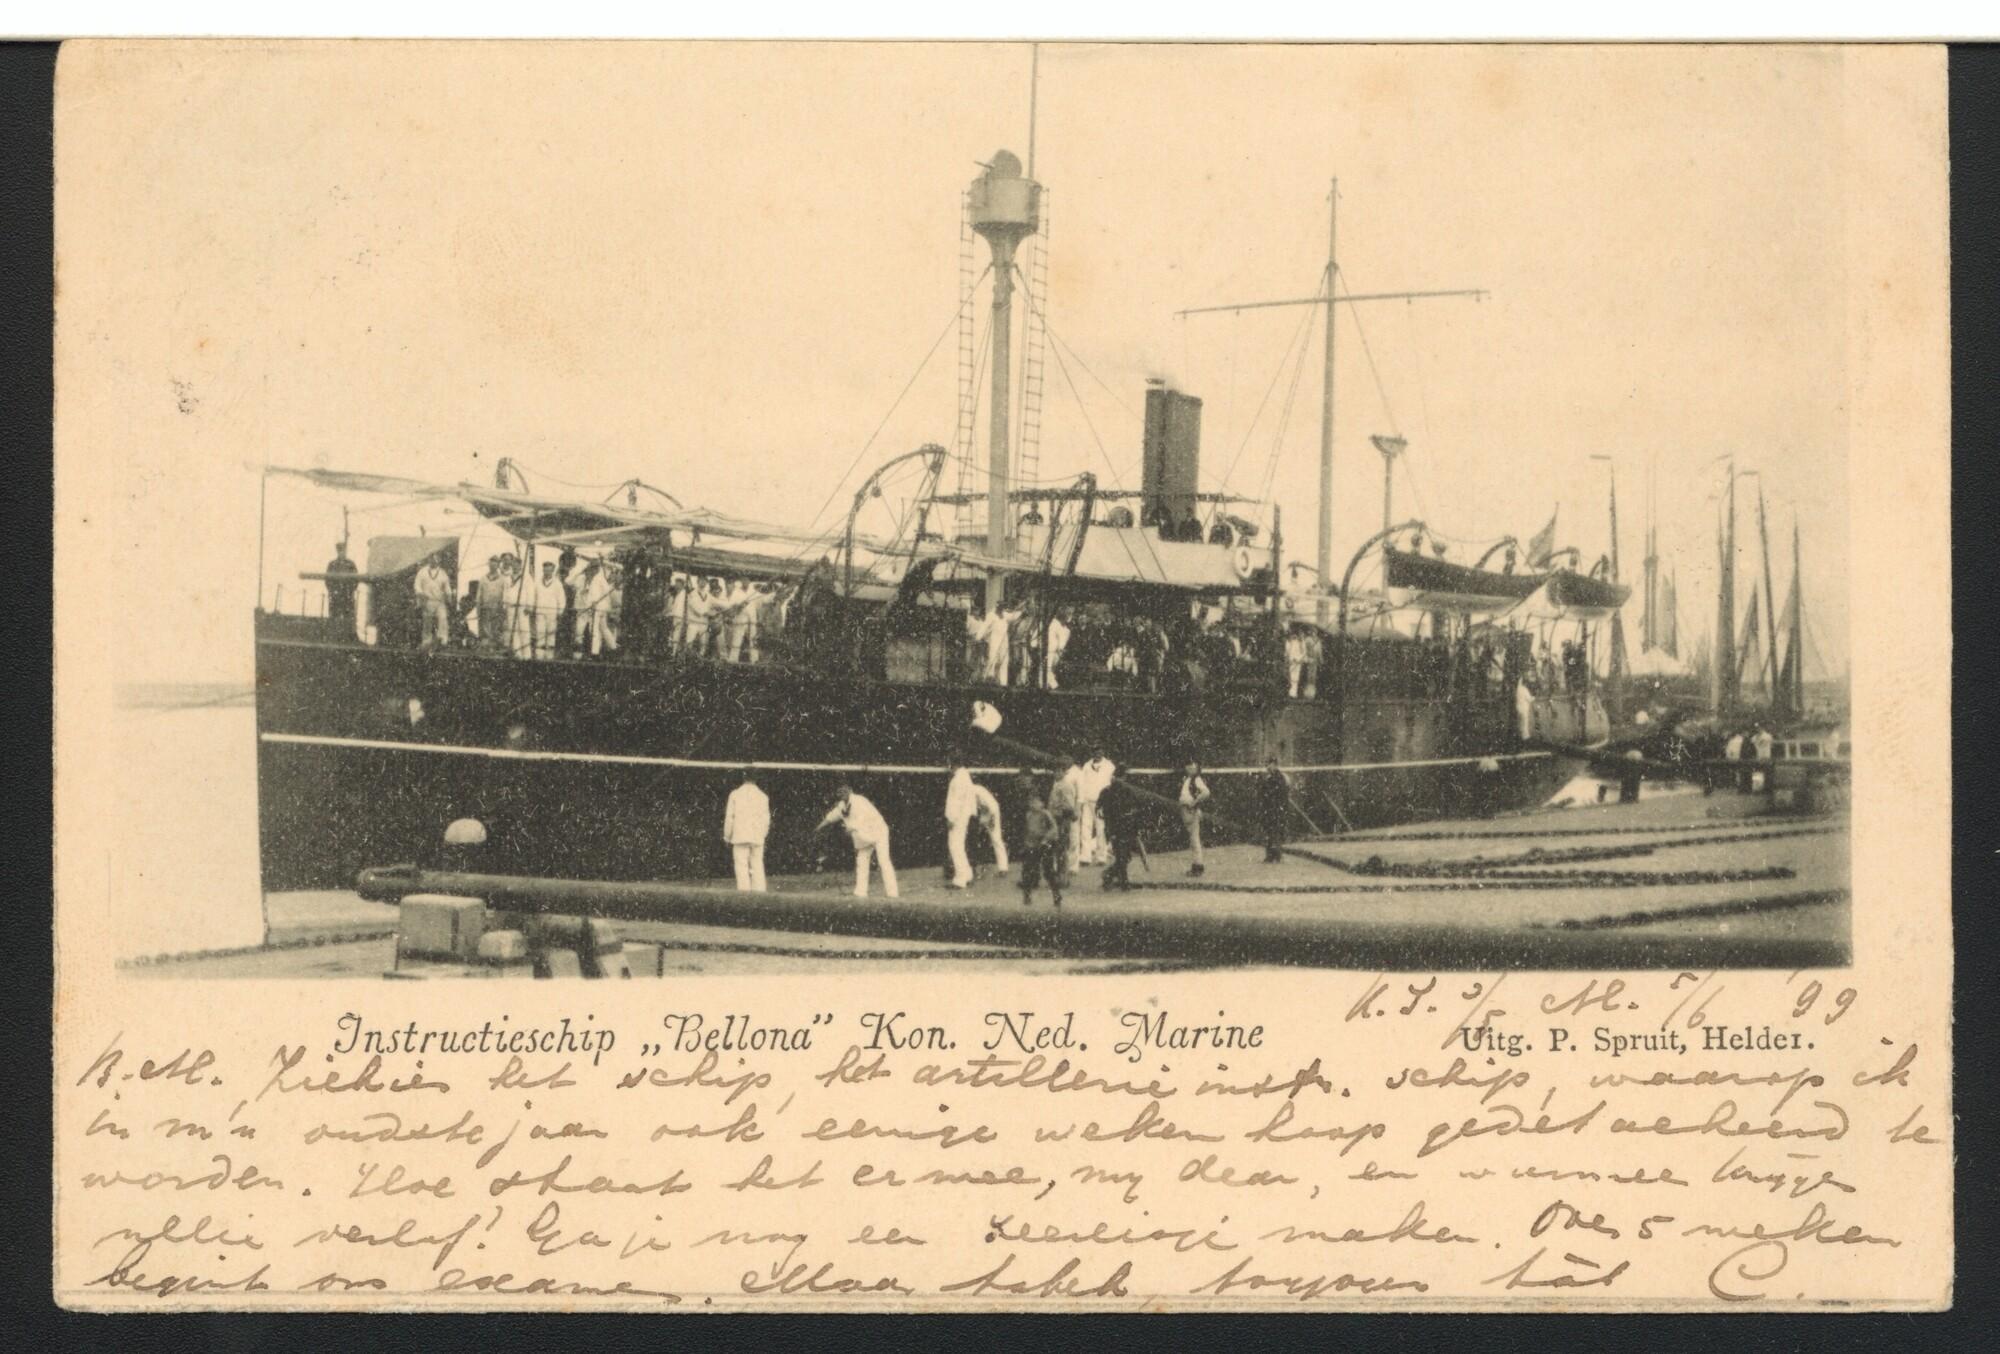 Instructieschip „Bellona” Kon. Ned. Marine
M. 5/6 '99
Uitg. P. Spruit, Helder.
B.M. Ziehier het schip, het artillerie instr. schip, waarop ik
in m'n oudste jaar ook eenige weken hoop gedetacheerd te
worden. Hoe staat het er mee, my dear, en wanneer krijgen
jullie verlof! Ga je nog een zeereisje maken. Over 5 weken
begint ons examen. Maar tabeh, toujours tât C.